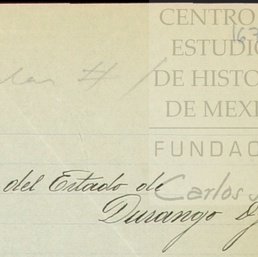 CENTRO
ESTUDIO
DE HISTO
DE MEXI
FUNDAC
del Estado de Carlos
Durango